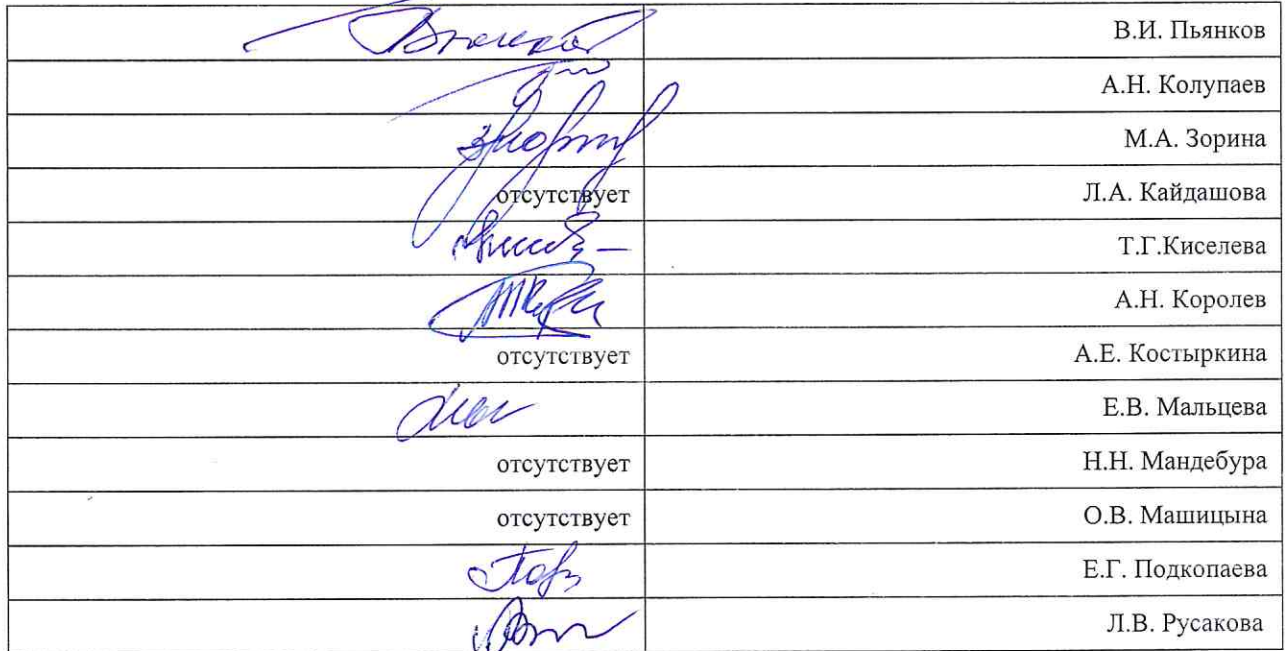 В.И. Пьянков
А.Н. Колупаев
М.А. Зорина
отсутствует Л.А. Кайдашова
Т.Г.Киселева
А.Н. Королев
отсутствует А.Е. Костыркина
Е.В. Мальцева
отсутствует Н.Н. Мандебура
отсутствует О.В. Машицына
Е.Г. Подкопаева
Л.В. Русакова